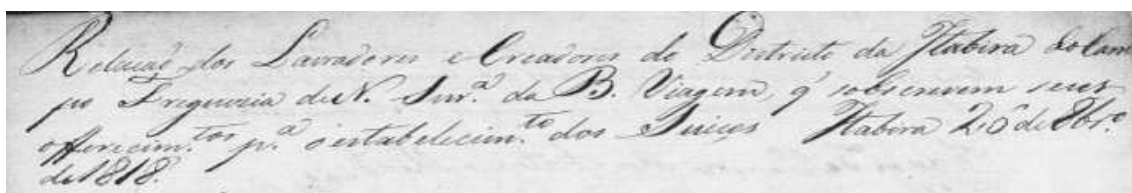 Relação dos Lavradores e Creadores do Districto da Itabira do Cam
po Freguezia de N. Snr.ª da B. Viagem, q' sobscrevem seus
offerecim.tos p.ª o estabelecim.to dos Suiços Itabira 26 de 8br.º
de 1818.